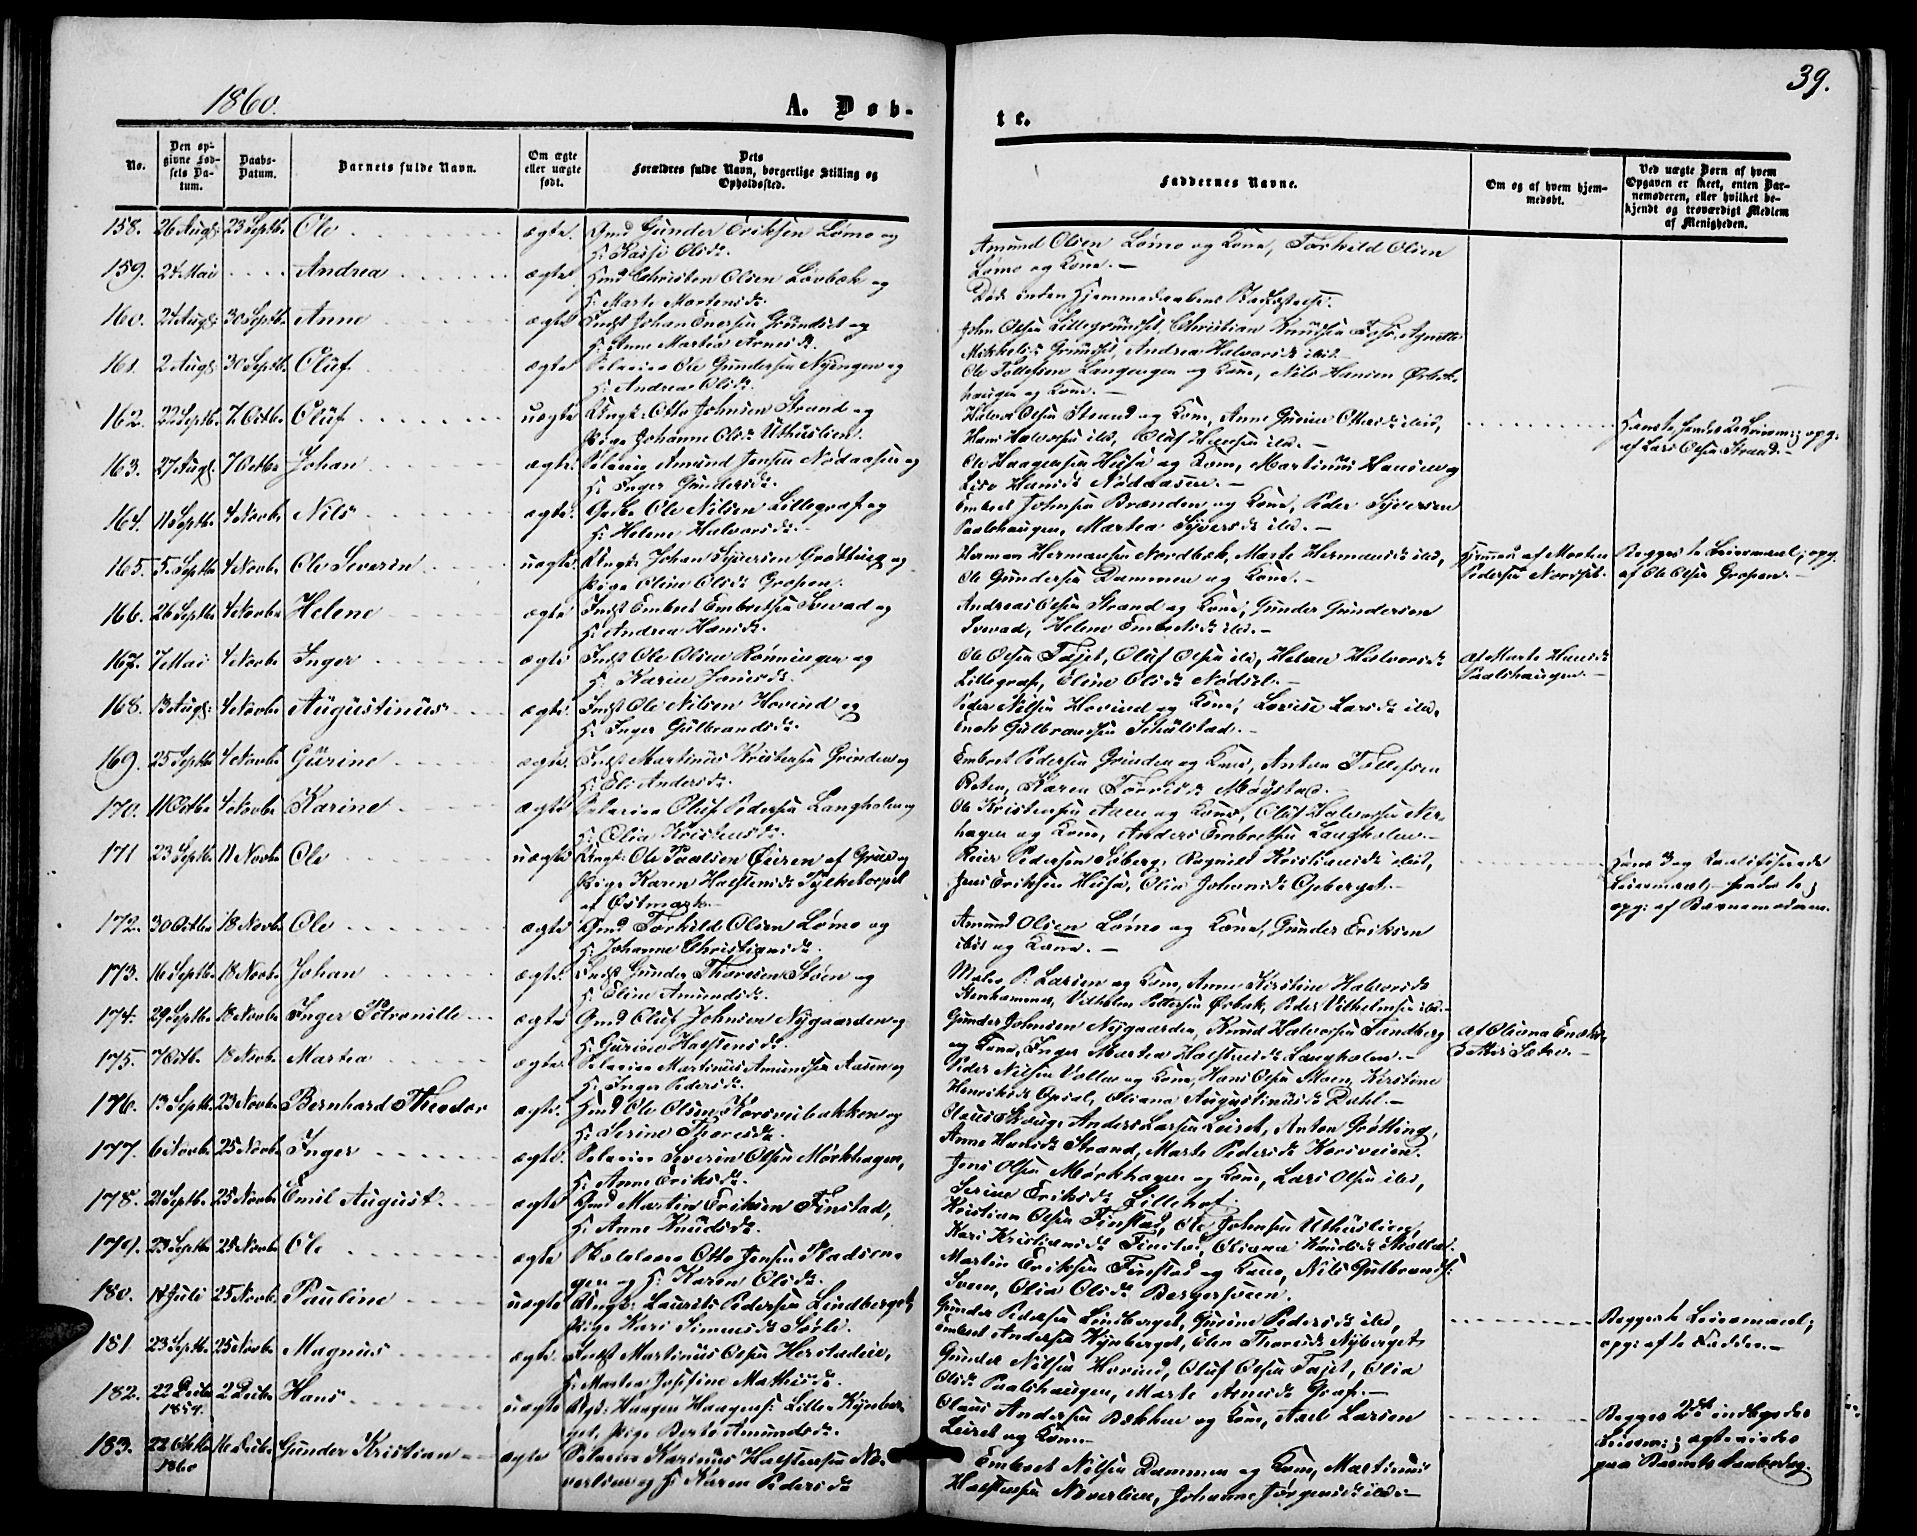 1860.
A. Døb-
te.
39.
No.
Den op-
givne Fød-
sels Da-
tum.
Daabs-
Datum.
Barnets fulde Navn.
Om ægte
eller uægte
født.
Dets
Forældres fulde Navn, borgerlige Stilling og
Opholdssted.
Faddernes Navne.
Om og af hvem hjem-
medøbt.
Ved uægte Børn af hvem
Opgaven er skeet, enten Bar-
nemoderen, eller hvilket be-
kjendt og troværdigt Medlem
af Menigheden.
158. 26 Augs: 23 Septbr. Ole ægte. Gmd Gunder Eriksen Lømo og
H: Kasse Olsdr.
Amund Olsen Lømo og Kone, Torkild Olsen
Lømo og Kone.—
159. 24 Mai Andrea ægte. Hmd Christen Olsen Løvbæk og
H: Marte Mortensdr.
Død inden Hjemmedaabens Stadfæstelse.
160. 24 Augs: 30 Septbr. Anne ægte Indst Johan Enersen Grundset og
H: Anne Martea Arnesdr.
John Olsen Lillegrundset, Christian Knudsen, Agnethe
Mikkelsdr Grundset, Andrea Halvorsdr ibid.—
161. 2 Augs: 30 Septbr. Oluf ægte Pelarius Ole Gundersen Nyengen og
H: Andrea Olsdr.
Ole Tollefsen Langengen og Kone, Nils Hansen Ørbek-
haugen og Kone.—
162. 22 Septbr. 7 Octbr. Oluf uægte Ungk: Otto Johnsen Strand og
Pige Johanne Olsdr Uthuslien.
Halvor Olsen Strand og Kone, Anne Gurine Ottersdr ibid,
Hans Halvorsen ibid, Oluf Olsen ibid.—
Hans 1ste hendes 2det Leierm:; opg:
af Lars Olsen Strand.—
163. 27 Augs: 7 Octbr Johan ægte: Pelarius Amund Jensen Nødaasen og
H: Inger Gundersdr.
Ole Haagensen Husu og Kone, Martinus Hansen og
Lise Hansdr Nødaasen.—
164. 11 Septbr. 4 Novbr Nils ægte. Ole Nilsen Lillegraf og
H: Helene Halvorsdr.
Embret Johnsen Brænden og Kone, Peder Syversen
Paalshaugen, Martea Syversdr ibid.—
165. 5 Septbr. 4 Novbr Ole Severin uægte. Ungk: Johan Syversen Grøtting og
Pige Oline Olsdr Gropen.
Herman Hermansen Nordbæk, Marte Hermansdr ibid,
Ole Gundersen Dammen og Kone.—
Hjemme af Morten
Pedersen Nordset.
Begges 1ste Leiermaal; opg:
af Ole Olsen Gropen.—
166. 26 Septbr. 4 Novbr Helene ægte Indst Embret Embretsen Svevad og
H: Andrea Hansdr.
Andreas Olsen Strand og Kone, Gunder Gundersen
Svevad, Helene Embretsdr ibid.—
167. 7 Mai 4 Novbr. Inger ægte Indst Ole Olsen Rønningen og
H: Karen Jonsdr.
Ole Olsen Tajet, Oluf Olsen ibid, Helene Halvorsdr
Lillegraf, Eline Olsdr Nødset.—
af Marte Hansdr
Paalshaugen.—
168. 13 Augs: 4 Novbr. Augustinus ægte Indst Ole Nilsen Hovind og
H: Inger Gulbrandsdr.
Peder Nilsen Hovind og Kone, Lovise Larsdr ibid,
Enok Gulbransen Schulstad.—
169. 25 Septbr. 4 Novbr. Gurine ægte. Indst Martinus Kristensen Grinden og
H: Eli Andersdr.
Embret Pedersen Grinden og Kone, Anton Tollefsen
Roten, Karen Torrisdr Møystad.—
170. 11 Octbr. 4 Novbr. Karine ægte Pelarius Oluf Pedersen Langholen og
H: Olea Kristensdr.
Ole Kristensen Aaen og Kone, Oluf Halvorsen Ner-
hagen og Kone, Anders Embretsen Langholen.—
171 23 Septbr. 11 Novbr. Ole uægte Ungk: Ole Paalsen Øieren af Grue og
Pige Karen Halstensdr Tysketorpet
af Østmark.—
Reier Pedersen Søberg, Ragnild Kristiansdr ibid,
Jens Eriksen Husu, Olia Johansdr Opberget.—
Hans 3die og
Leiermaal, hendes 1ste;
opg: af Barnemoderen.
172. 30 Octbr. 18 Novbr. Ole ægte Gmd Torkild Olsen Lømo og
H: Johanne Christiansdr.
Amund Olsen Lømo og Kone, Gunder Eriksen
ibid og Kone.—
173. 16 Septbr. 18 Novbr. Johan ægte Indst Gunder Thoresen Støen og
H: Eline Amundsdr.
Maler P. Larsen og Kone, Anne Kirstine Halvorsdr
Stenhammer, Vilhelm Pettersen Ørbæk, Peder Vilhelmsen ibid.—
174. 29 Septbr. 18 Novbr. Inger Petronille ægte Gmd Oluf Johnsen Nygaarden og
H: Gurine Halstensdr.
Gunder Johnsen Nygaarden, Knud Halvorsen Sandberg
og Kone, Inger Martea Halstensdr Langholen.—
af Oliana Enoks-
datter Sætre.—
175. 7 Octb. 18 Novbr. Martea ægte Pelarius Martinus Amundsen Aasen og
H: Inger Pedersdr.
Peder Nilsen Vollen og Kone, Hans Olsen Moen, Kirstine
Henriksdr Opsal, Oliana Augustinusdr Dahl.—
176. 13 Septbr. 23 Novbr. Bernhard Theodor ægte. Hmd Ole Olsen Korsveibakken og
H: Serine Thoresdr.
Olaus Skoug, Anders Larsen Leiret, Anton Grøtting,
Anne Hansdr Strand, Marte Pedersdr Korsveien.
177. 6 Novbr. 25 Novbr. Inger ægte. Pelarius Severin Olsen Mørkhagen,
H: Anne Eriksdr.
Jens Olsen Mørkhagen og Kone, Lars Olsen ibid,
Serine Eriksdr Lillehof.
178. 21 Septbr. 25 Novbr. Emil August ægte Gmd Martin Eriksen Finstad,
H: Anne Knudsdr.
Kristian Olsen Finstad, Ole Johnsen Uthuslien,
Kari Kristiansdr Finstad, Oliana Knudsdr
179. 23 Septbr. 25 Novbr. Ole ægte Otto Jensen Pladsen-
gen og H: Karen Olsdr.
Martin Eriksen Finstad og Kone, Nils Gulbrands:
Sveen, Olia Olsdr Bergersveen.
180. 14 Juli 25 Novbr. Pauline uægte Ungk: Laurits Pedersen Lindberget,
Pige Kari Simensdr Sørli.
Gunder Pedersen Lindberget, Gurine Pedersdr ibid,
Embret Andersen Kynberget, Olea Thoresdr Nyberget
Begges 1ste Leiermaal;
opg: af 1ste Fadder.—
181 23 Septbr. 25 Novbr. Magnus ægte. Indst Martinus Olsen Herstadeie,
H: Martea Josefine Mathisdr.
Gunder Nilsen Hovind, Oluf Olsen Tajet, Olia
Olsdr Paalshaugen, Marte Arnesdr Graf.—
182. 22 Decbr.
1859. 2 Decbr. Hans uægte Ungk: Haagen Haagens: Lille Kynber-
get, Pige Berte Amundsdr.
Olaus Andersen Bekken og Kone, Axel Larsen
Leiret og Kone.
Begges 2det indbyrdes
Leierm:; ægteviedes
paa Barnets Daabsdag.
183. 22 Octbr.
1860 Gunder Kristian ægte Pelarius Karinus Halstensen Næ-
verlien og H: Karen Pedersdr
Embret Nilsen Dammen og Kone, Martinus
Halstensen Næverlien, Johanne Jørgensdr ibid.—